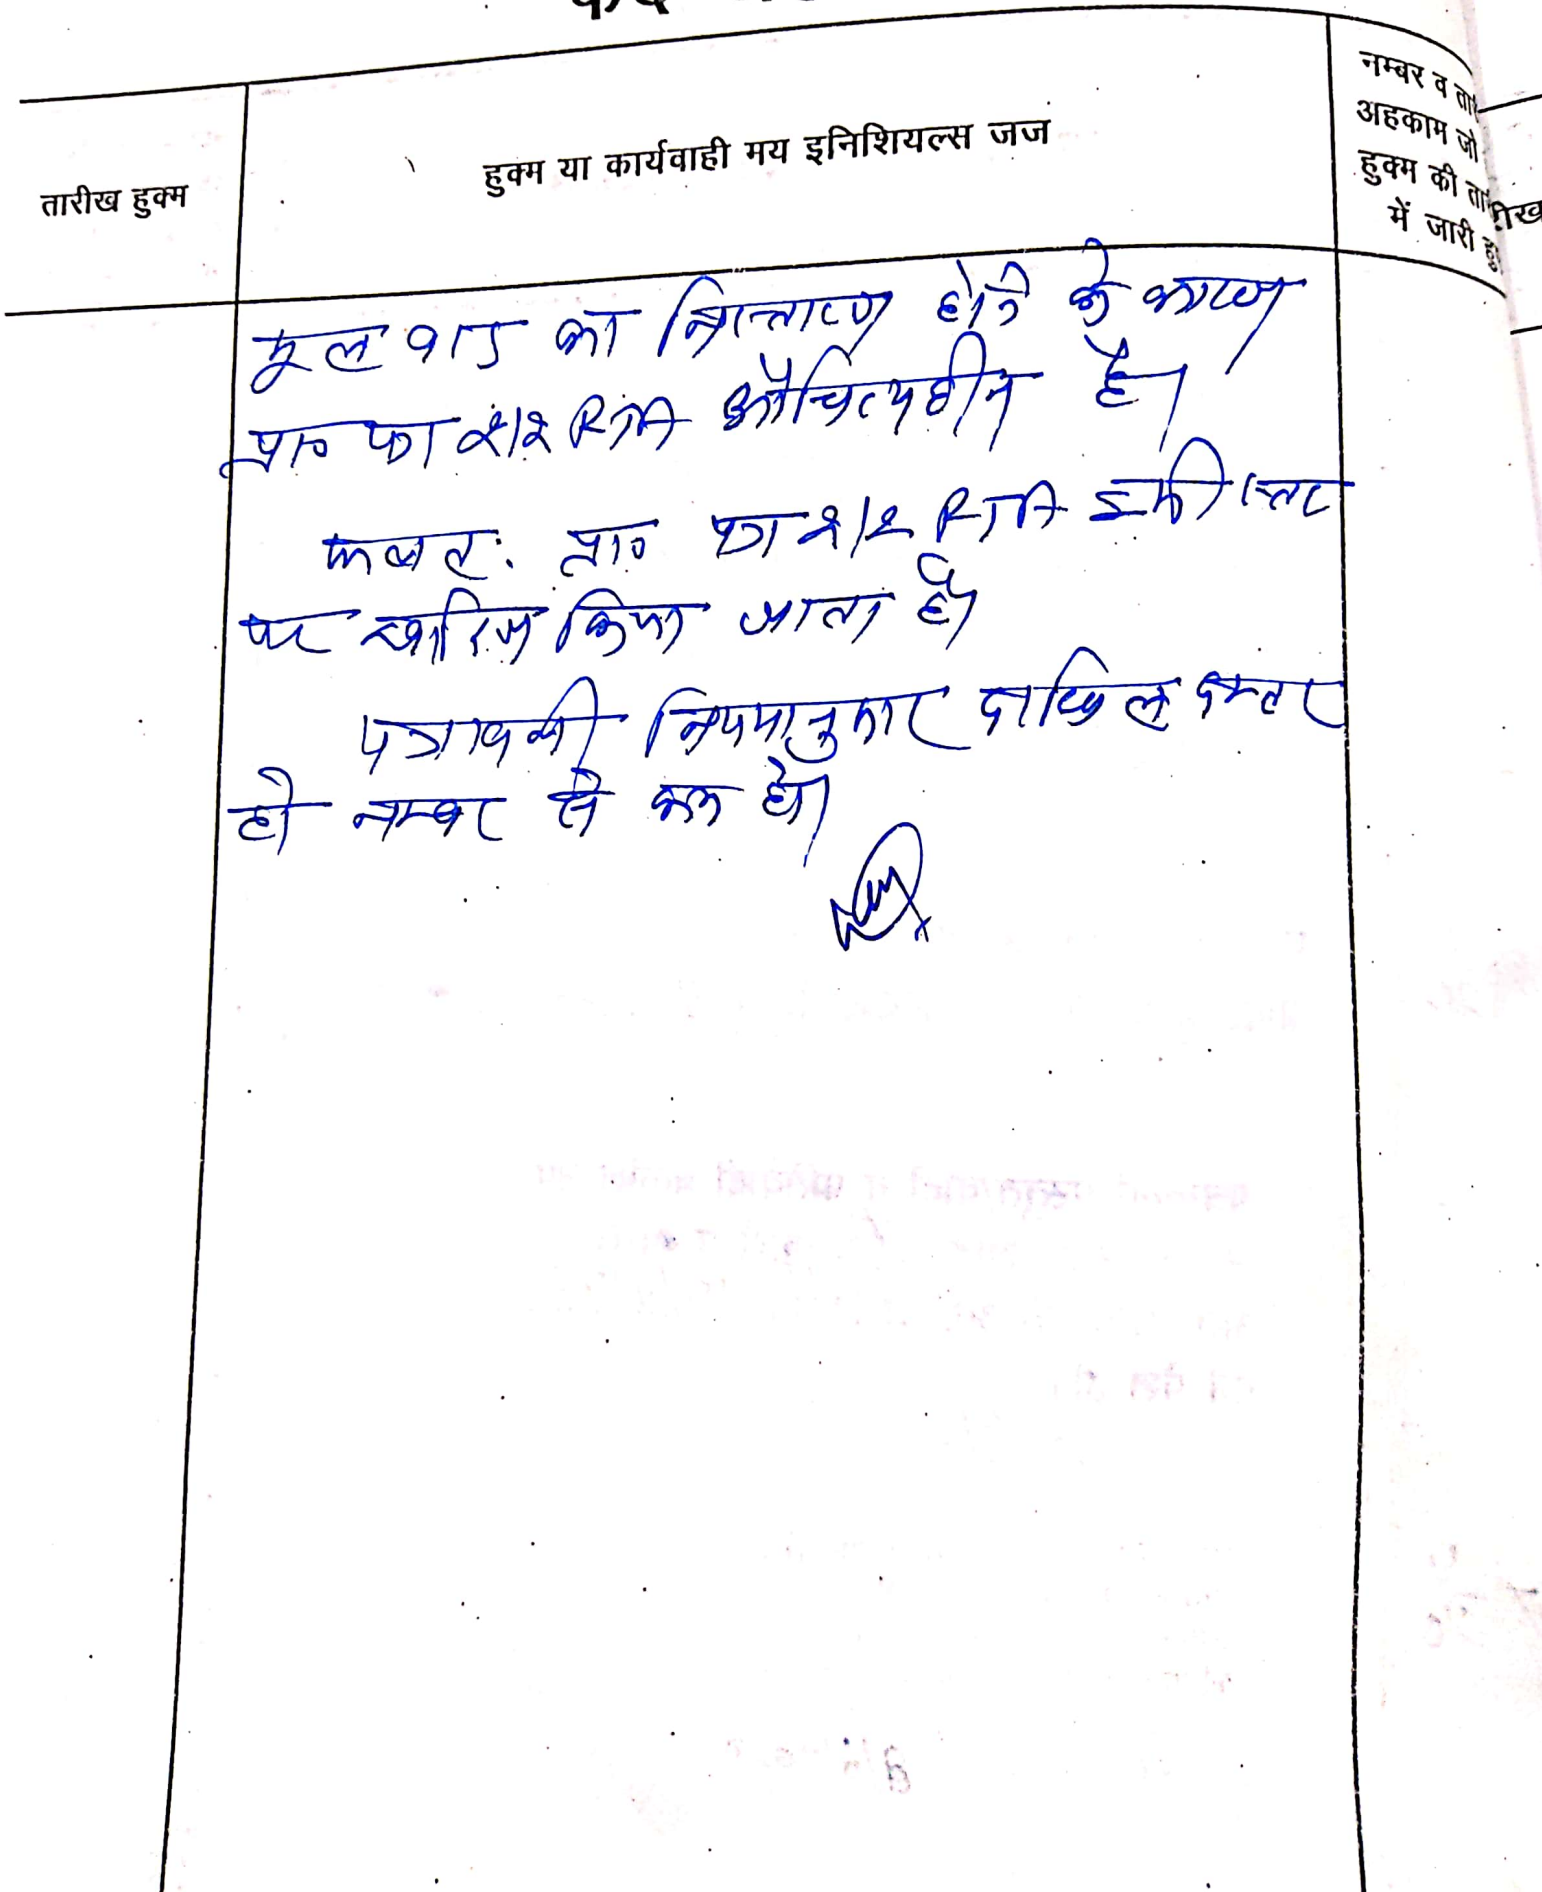 तारीख हुक्म
हुक्म या कार्यवाही मय इनिशियल्स जज
नम्बर व
अहकाम जो
हुक्म की
में जारी
मूल वाद का निस्तारण होने के कारण
प्रा० पत्र 212 RTA औचित्यहीन है।
फलत: प्रा० पत्र 212 RTA इसी स्तर
पर खारिज किया जाता है।
पत्रावली नियमानुसार दाखिल दफ्तर
हो नम्बर से कम हो।